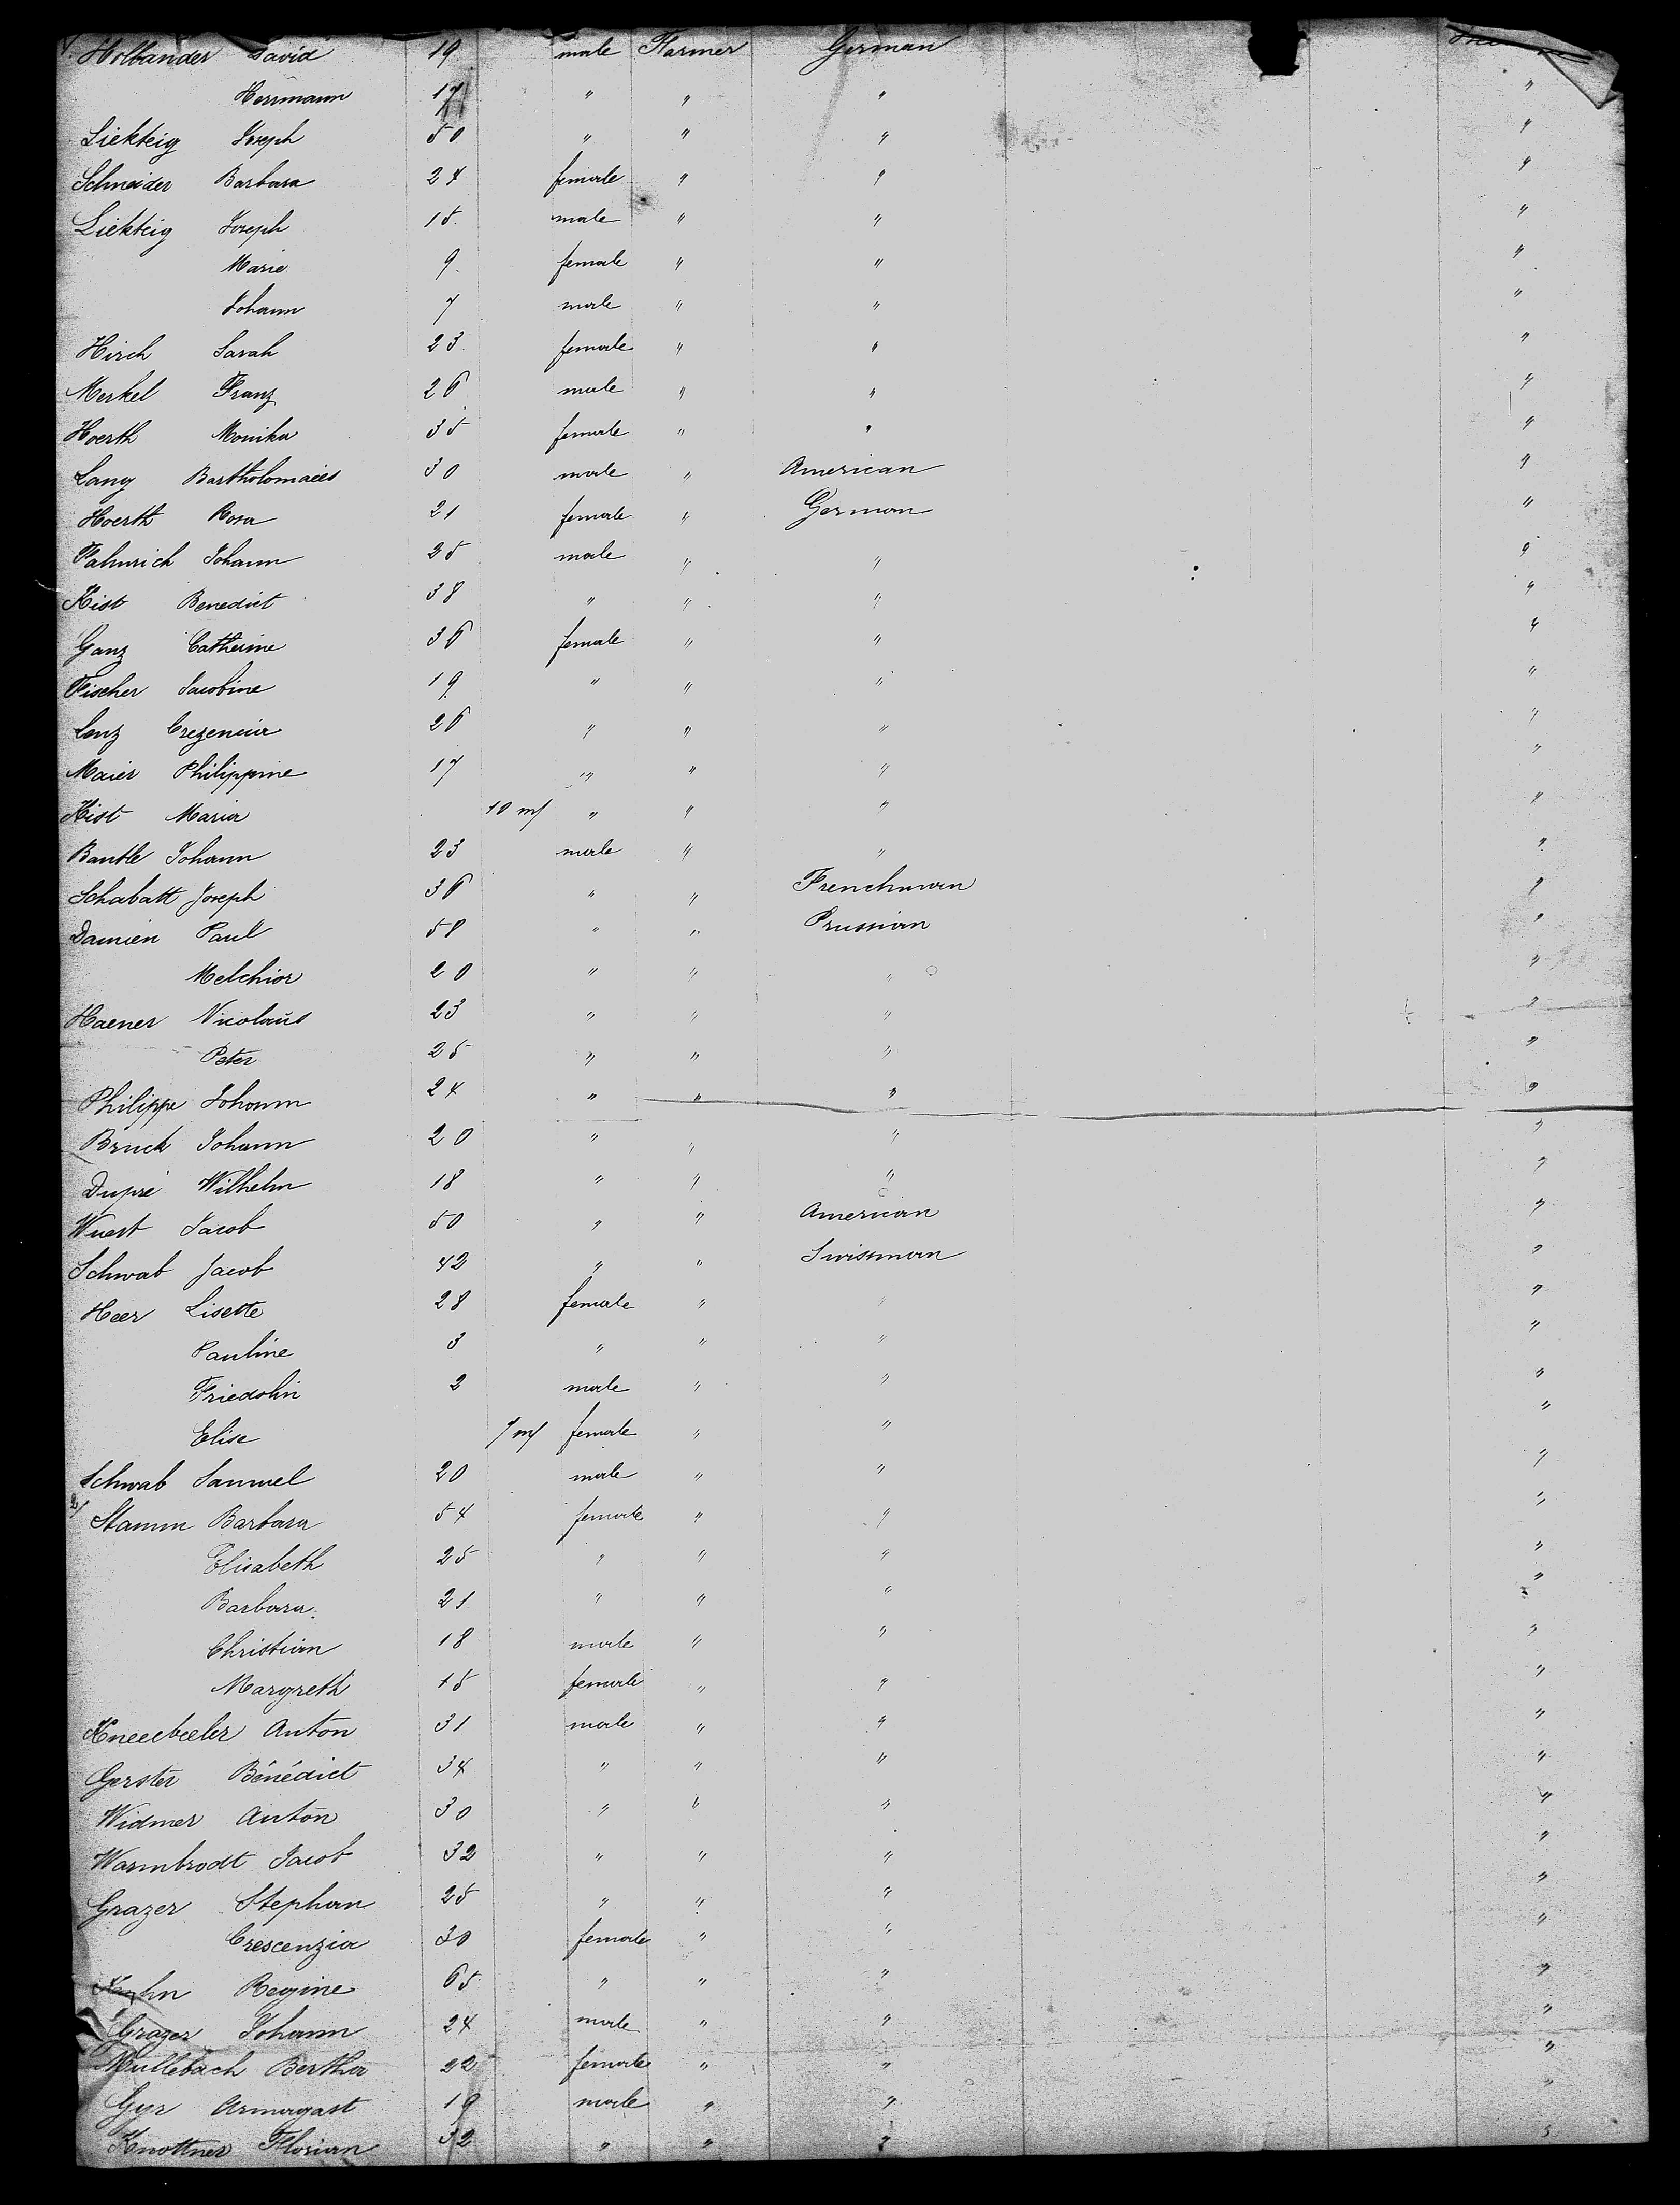 Hollander David 19 male Farmer German
Herrmann 17 " " " "
Liekteig Joseph 50 " " " "
Schneider Barbara 24 female " " "
Liekteig Joseph 15 male " " "
Marie 9 female " " "
Johann 7 male " " "
Hirch Sarah 23 female " " "
Merkel Franz 26 male " " "
Hoerth Monika 35 female " " "
Lang Bartholomaées 30 male " American "
Hoerth Rosa 21 female " German "
Fahnrich Johann 25 male " " "
Kist Benedict 38 " " " "
Ganz Catherine 36 female " " "
Fischer Jacobine 19 " " " "
Lenz Crezencia 26 " " " "
Maier Philippine 17 " " " "
Kist Maria 10 m/ " " " "
Bantle Johann 23 male " " "
Schabatt Joseph 36 " " Frenchman "
Damien Paul 58 " " Prussian "
Melchior 20 " " " "
Haener Nicolaŭs 23 " " " "
Peter 25 " " " "
Philippe Johann 24 " " " "
Bruck Johann 20 " " " "
Dupré Wilhelm 18 " " " "
Wuest Jacob 50 " " American "
Schwab Jacob 42 " " Swissman "
Heer Lisette 28 female " " "
Pauline 3 " " " "
Friedolin 2 male " " "
Elise 7 m/ female " " "
Schwab Samuel 20 male " " "
2/ Stamm Barbara 54 female " " "
Elisabeth 25 " " " "
Barbara 21 " " " "
Christian 18 male " " "
Margreth 15 female " " "
Anton 31 male " " "
Gerster Bénédict 34 " " " "
Widmer Anton 30 " " " "
Warmbrodt Jacob 32 " " " "
Grazer Stephan 25 " " " "
Crescenzia 30 female " " "
Regine 65 " " " "
Grazer Johann 24 male " " "
Mullebach Bertha 22 female " " "
Gyr Armogast 19 male " " "
Knottner Florian 32 " " " "